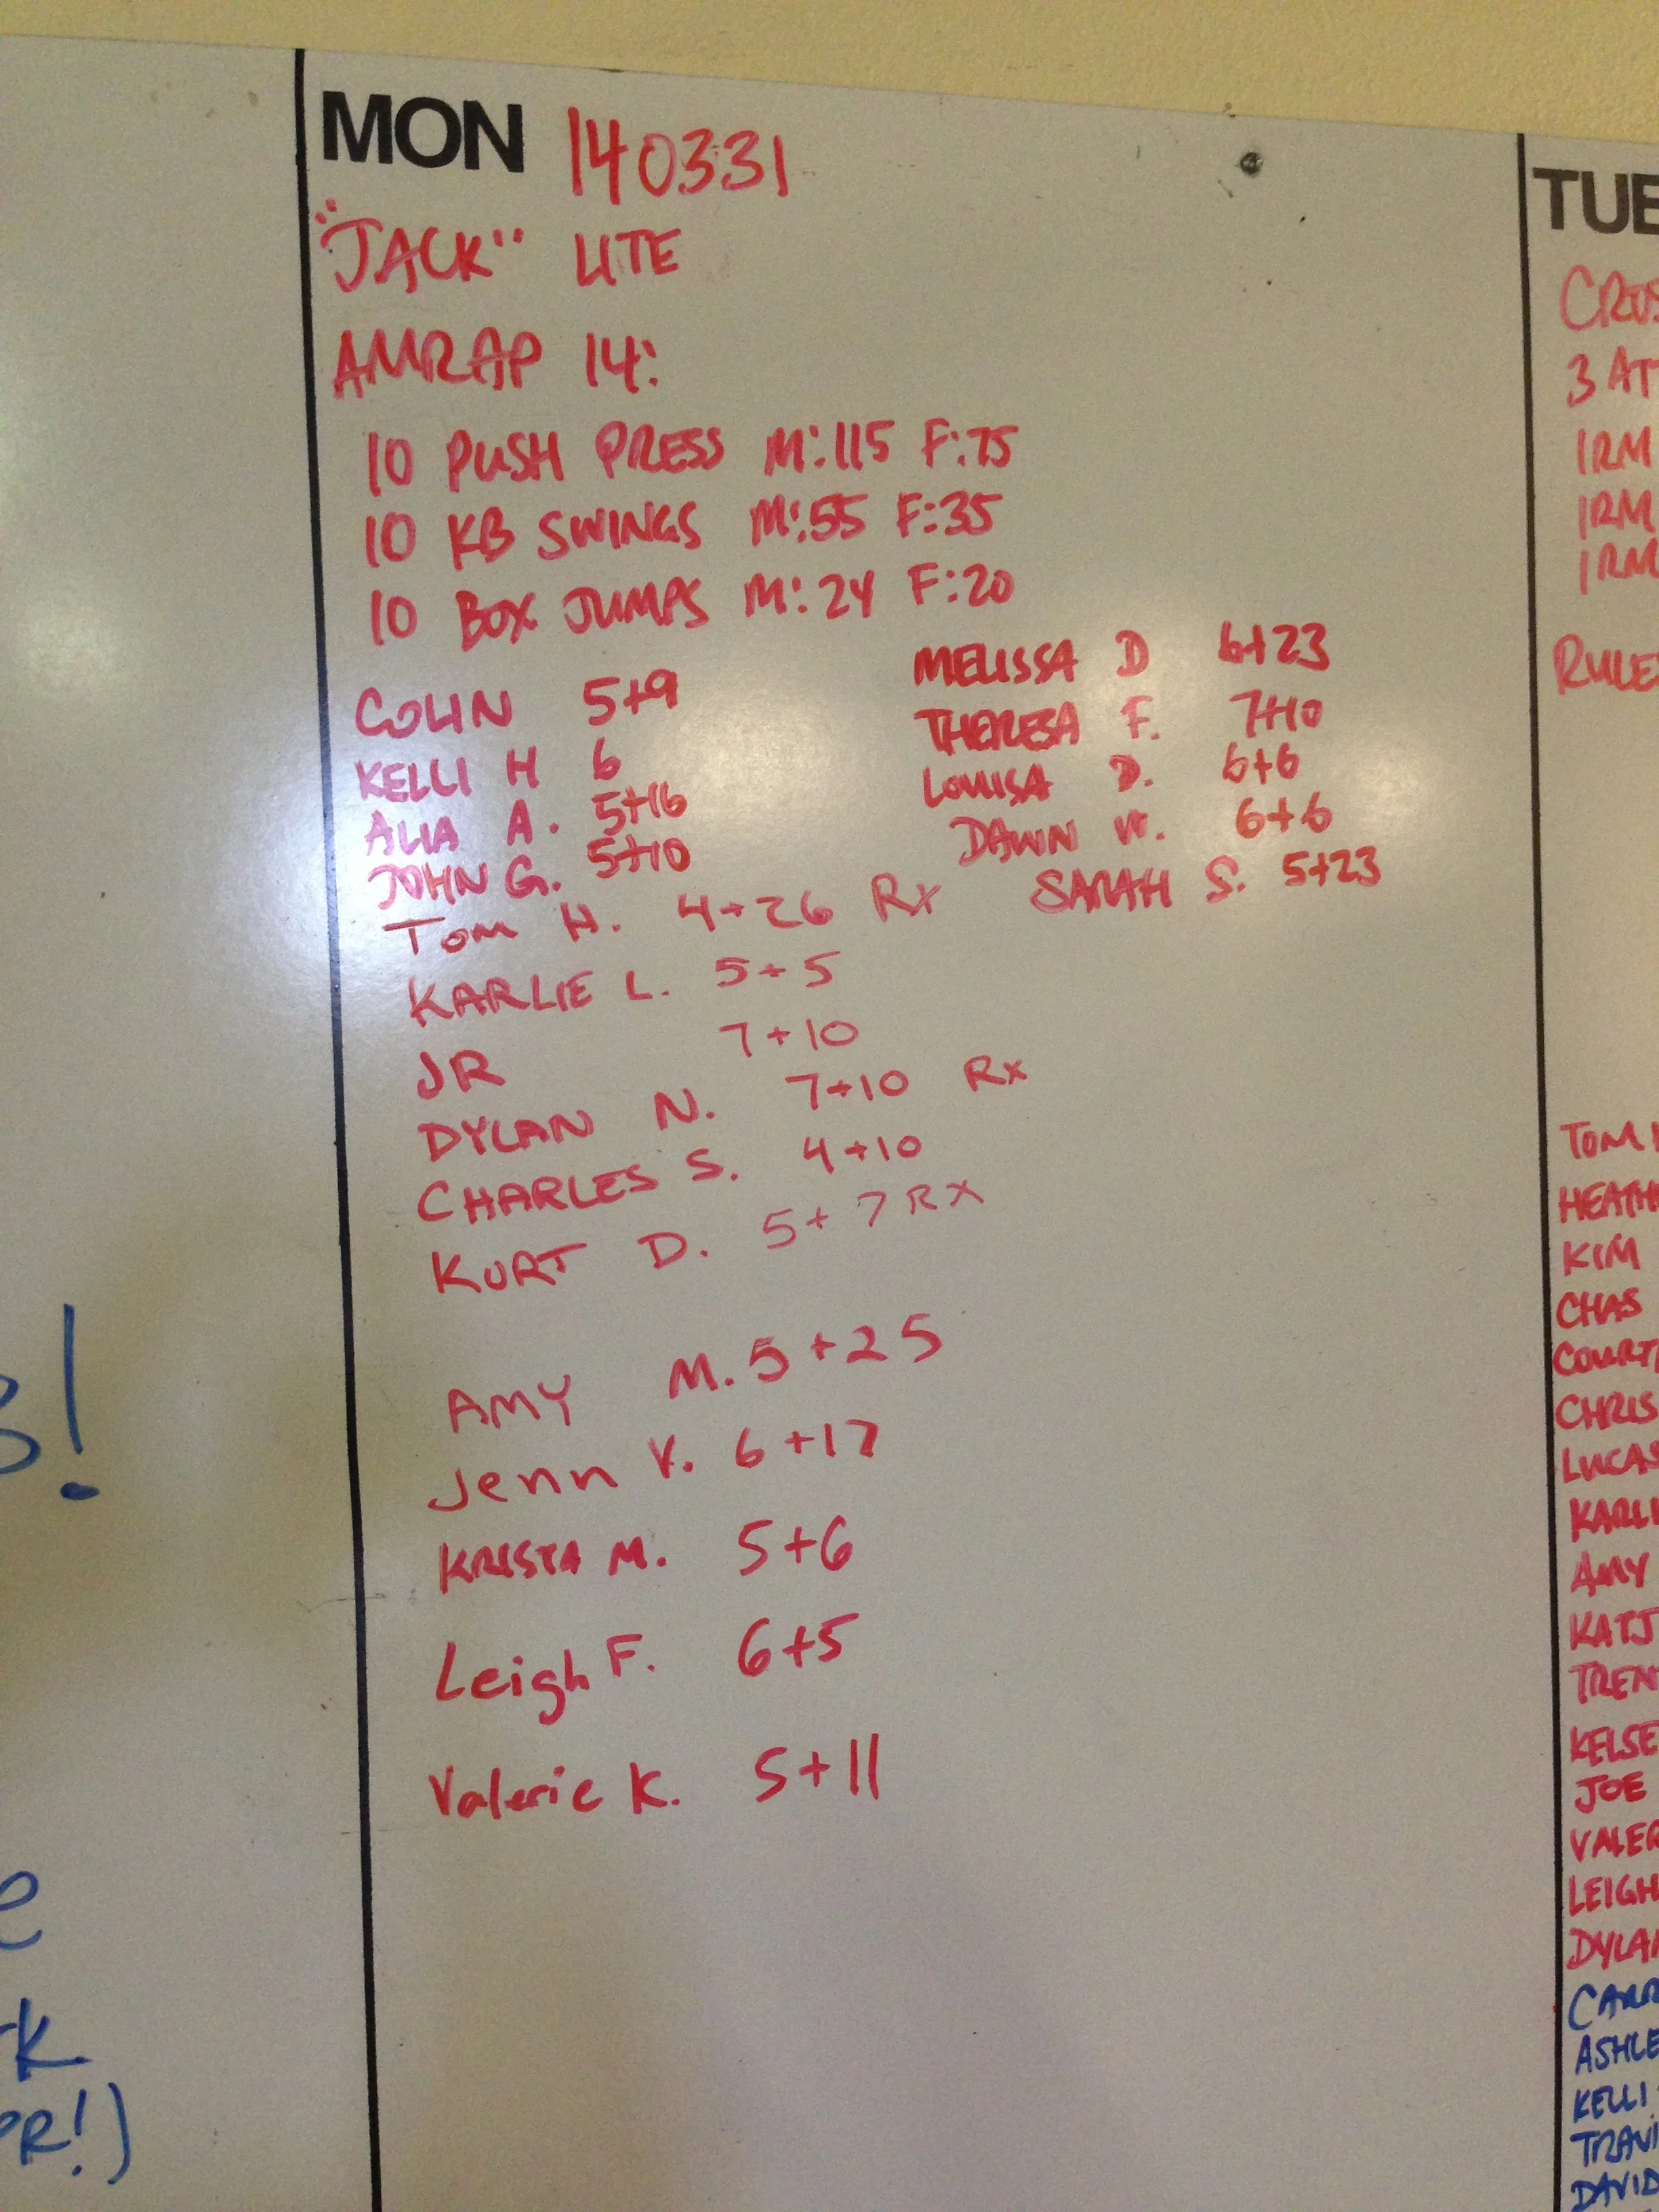 MON 140331
"JACK" LITE
AMRAP 14:
10 PUSH PRESS M:115 F:75
10 KB SWINGS M:55 F:35
10 BOX JUMPS M:24 F:20
COLIN 5+9
KELLI H 6
ALIA A. 5+16
JOHN G. 5+10
TOM H. 4+26 Rx
KARLIE L. 5+5
JR 7+10
DYLAN N. 7+10 Rx
CHARLES S. 4+10
KURT D. 5+7 RX
AMY M. 5+25
Jenn V. 6+17
KRISTA M. 5+6
Leigh F. 6+5
Valerie K. 5+11
MELISSA D 6+23
THERESA F. 7+10
LOUISA D. 6+6
DAWN W. 6+6
SARAH S. 5+23
TUE
CROS
3 AT
1RM
1RM
1RM
RULES
TOM
HEATH
KIM
CHAS
COURT
CHRIS
LUCAS
KARLI
AMY
KATJ
TREN
KELSE
JOE
VALER
LEIGH
DYLAN
CARR
ASHLE
KELLI
TRAVI
DAVID
!
e
rk
PR!)